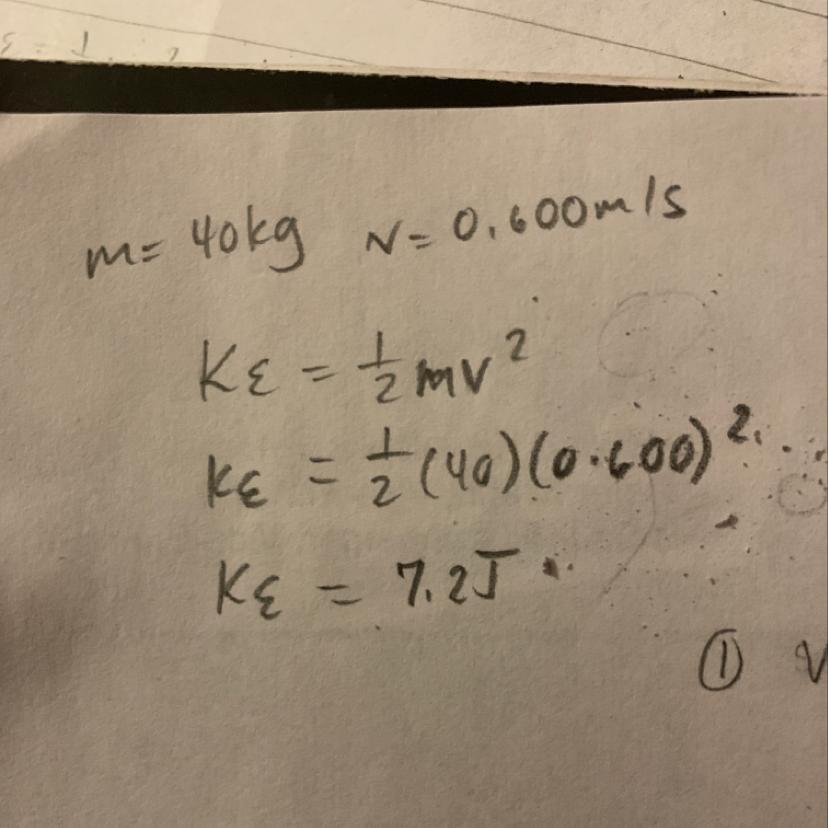 m= 40kg v= 0.600m/s
KE = 1/2 mv²
KE = 1/2 (40)(0.600)²
KE = 7.2J
① V